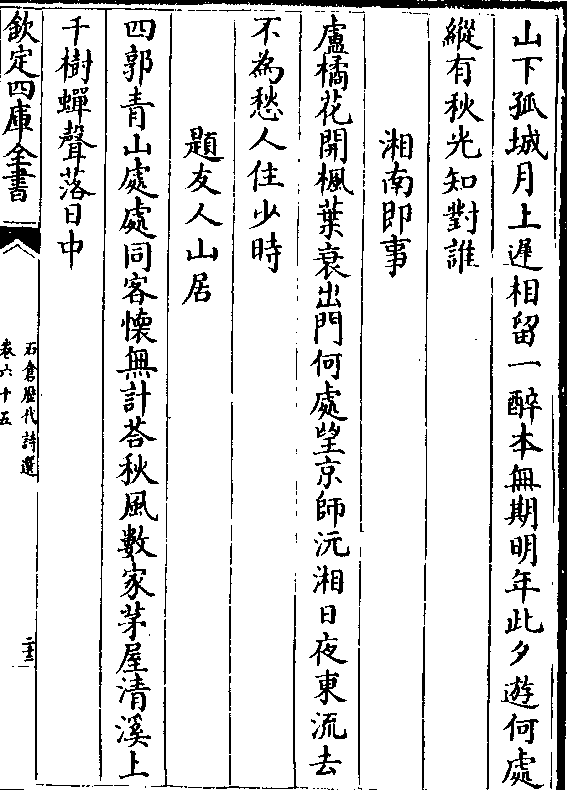 山下孤城月上遲相留一醉本無期明年此夕遊何處
縱有秋光知對誰
湘南即事
盧橘花開楓葉衰出門何處望京師沅湘日夜東流去
不為愁人住少時
題友人山居
四郭青山處處同客懐無計荅秋風數家茅屋清溪上
千樹蟬聲落日中
欽定四庫全書
石倉歴代詩選
卷六十五
二十三